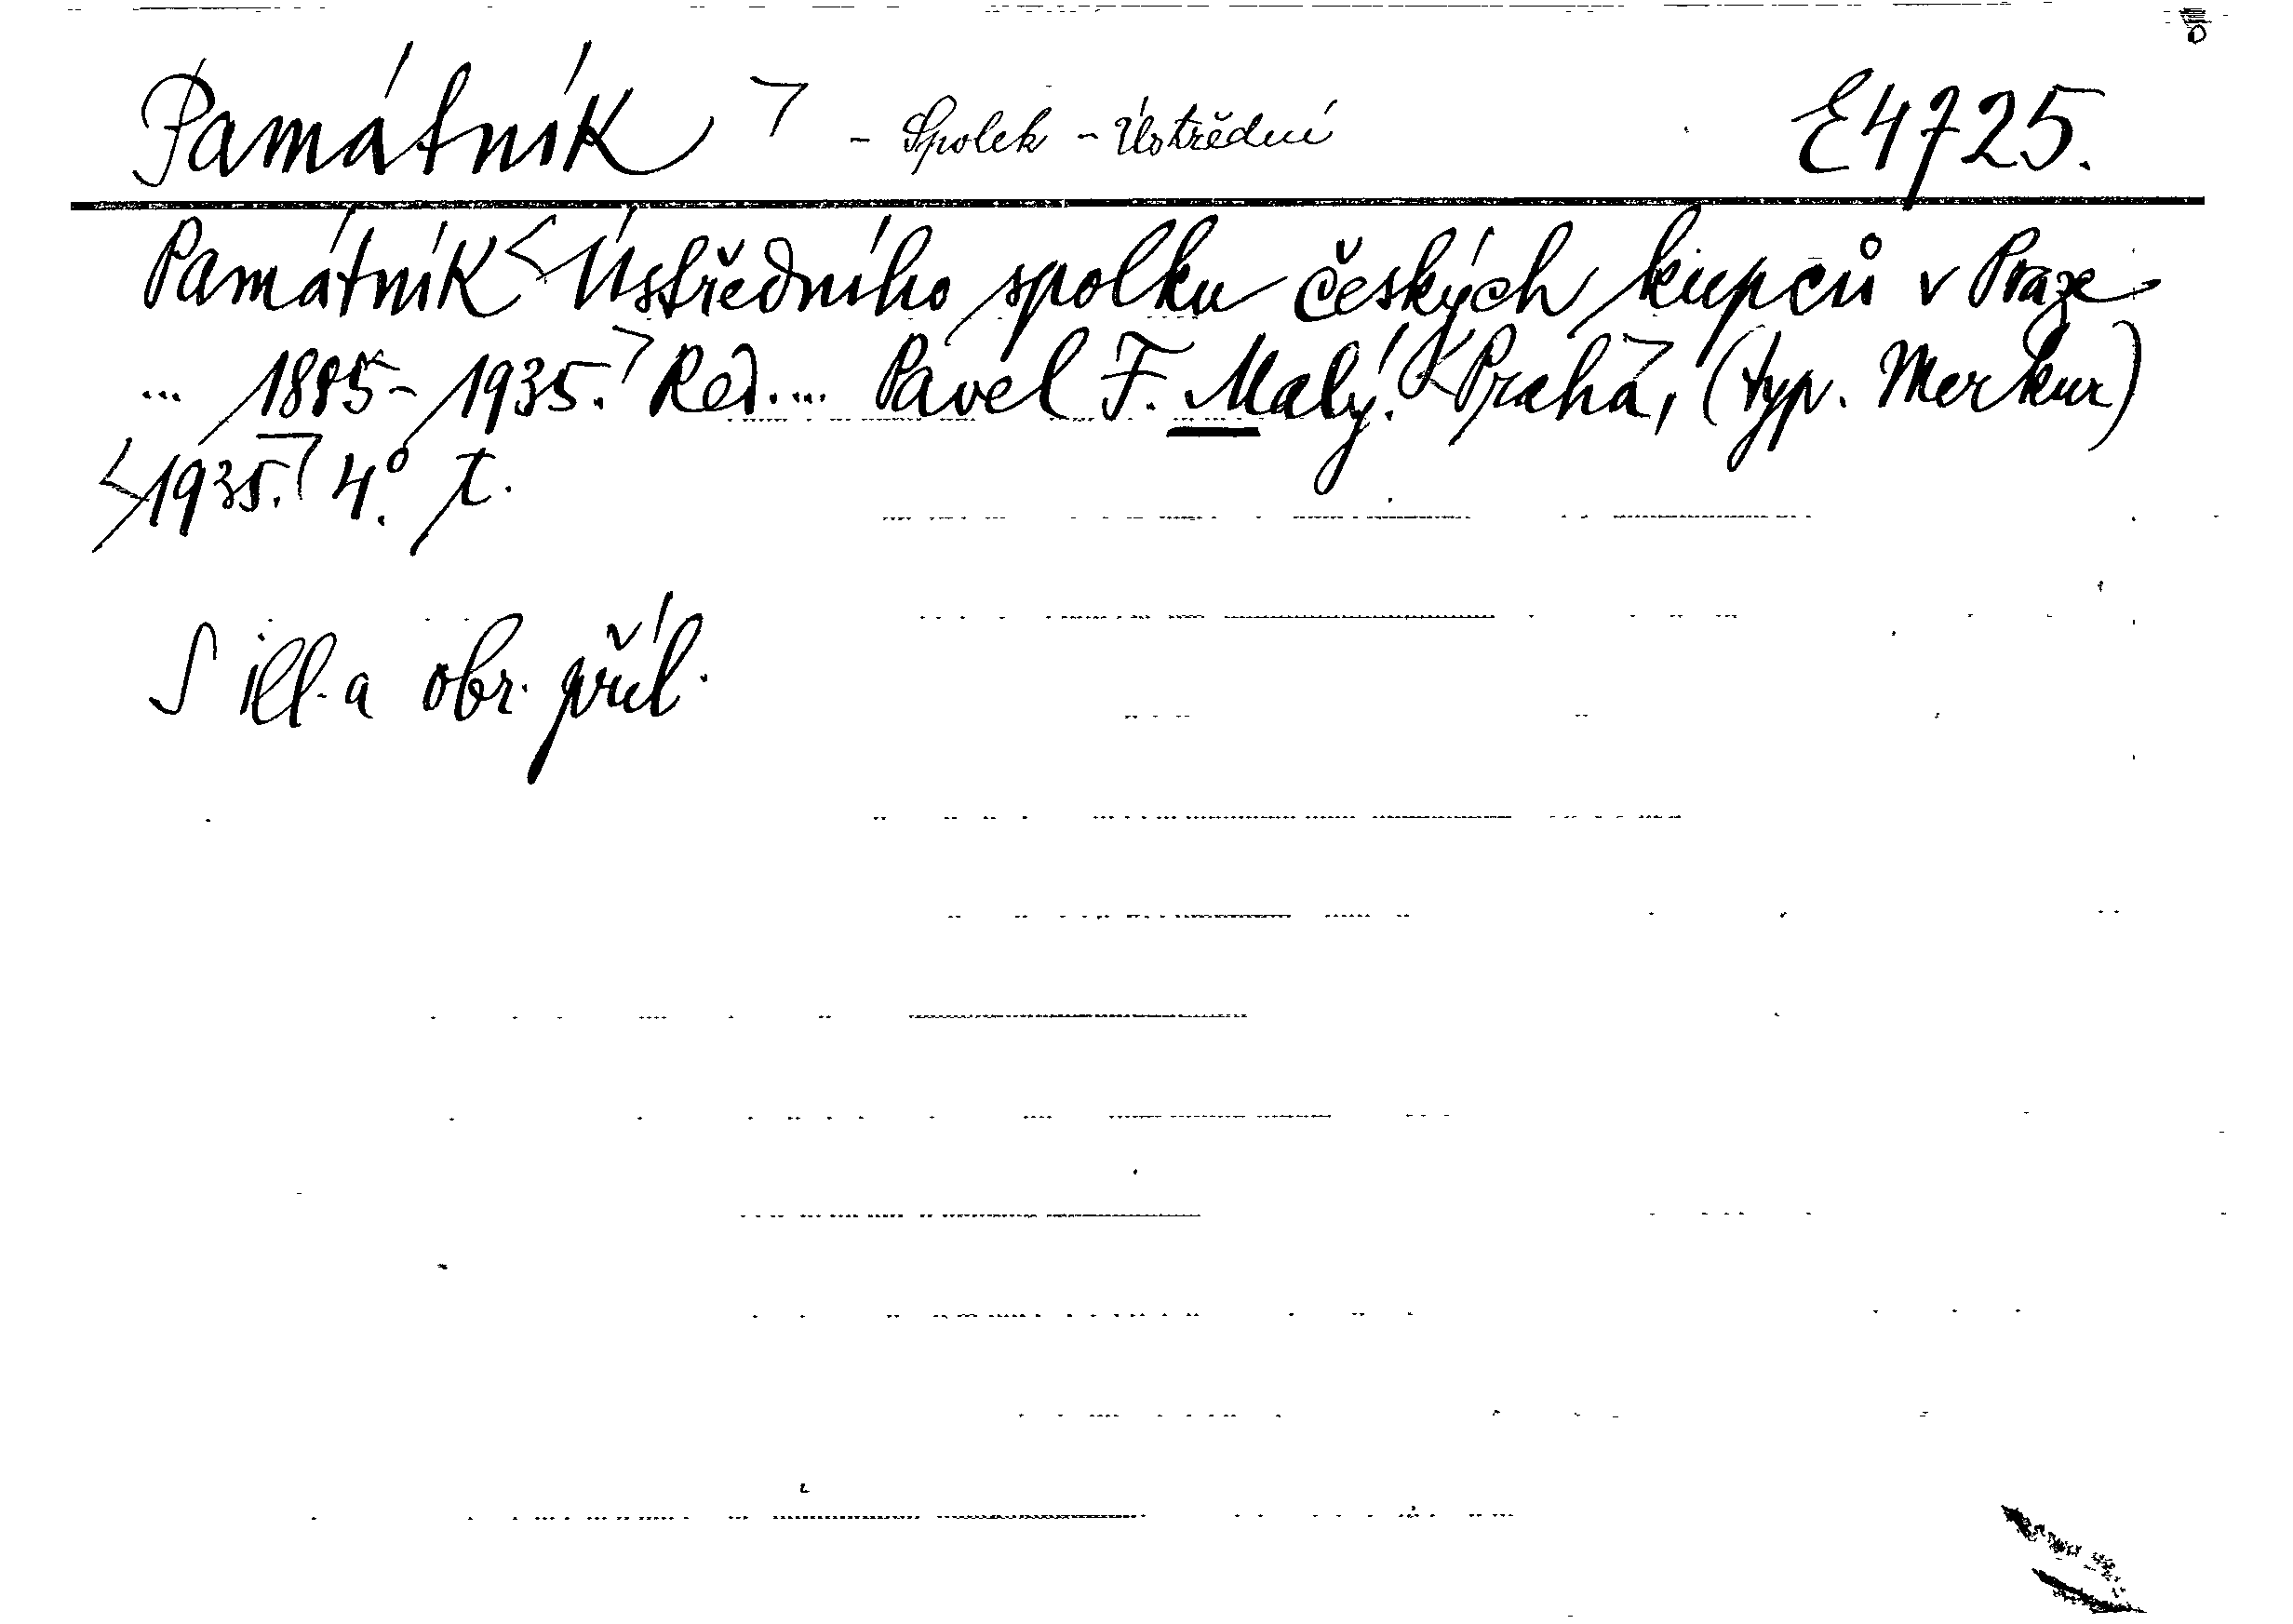 Památník - Spolek - Ústřední E4725.
Památník Ústředního spolku českých kupců v Praze
... 1885-1935. Red.... Pavel F. Malý. Praha, (typ. Merkur)
1935. 4°.
S ill. a obr. příl.